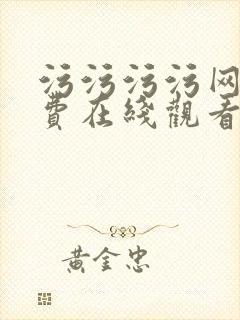 污污污污网
費在綫觀看
黄金忠